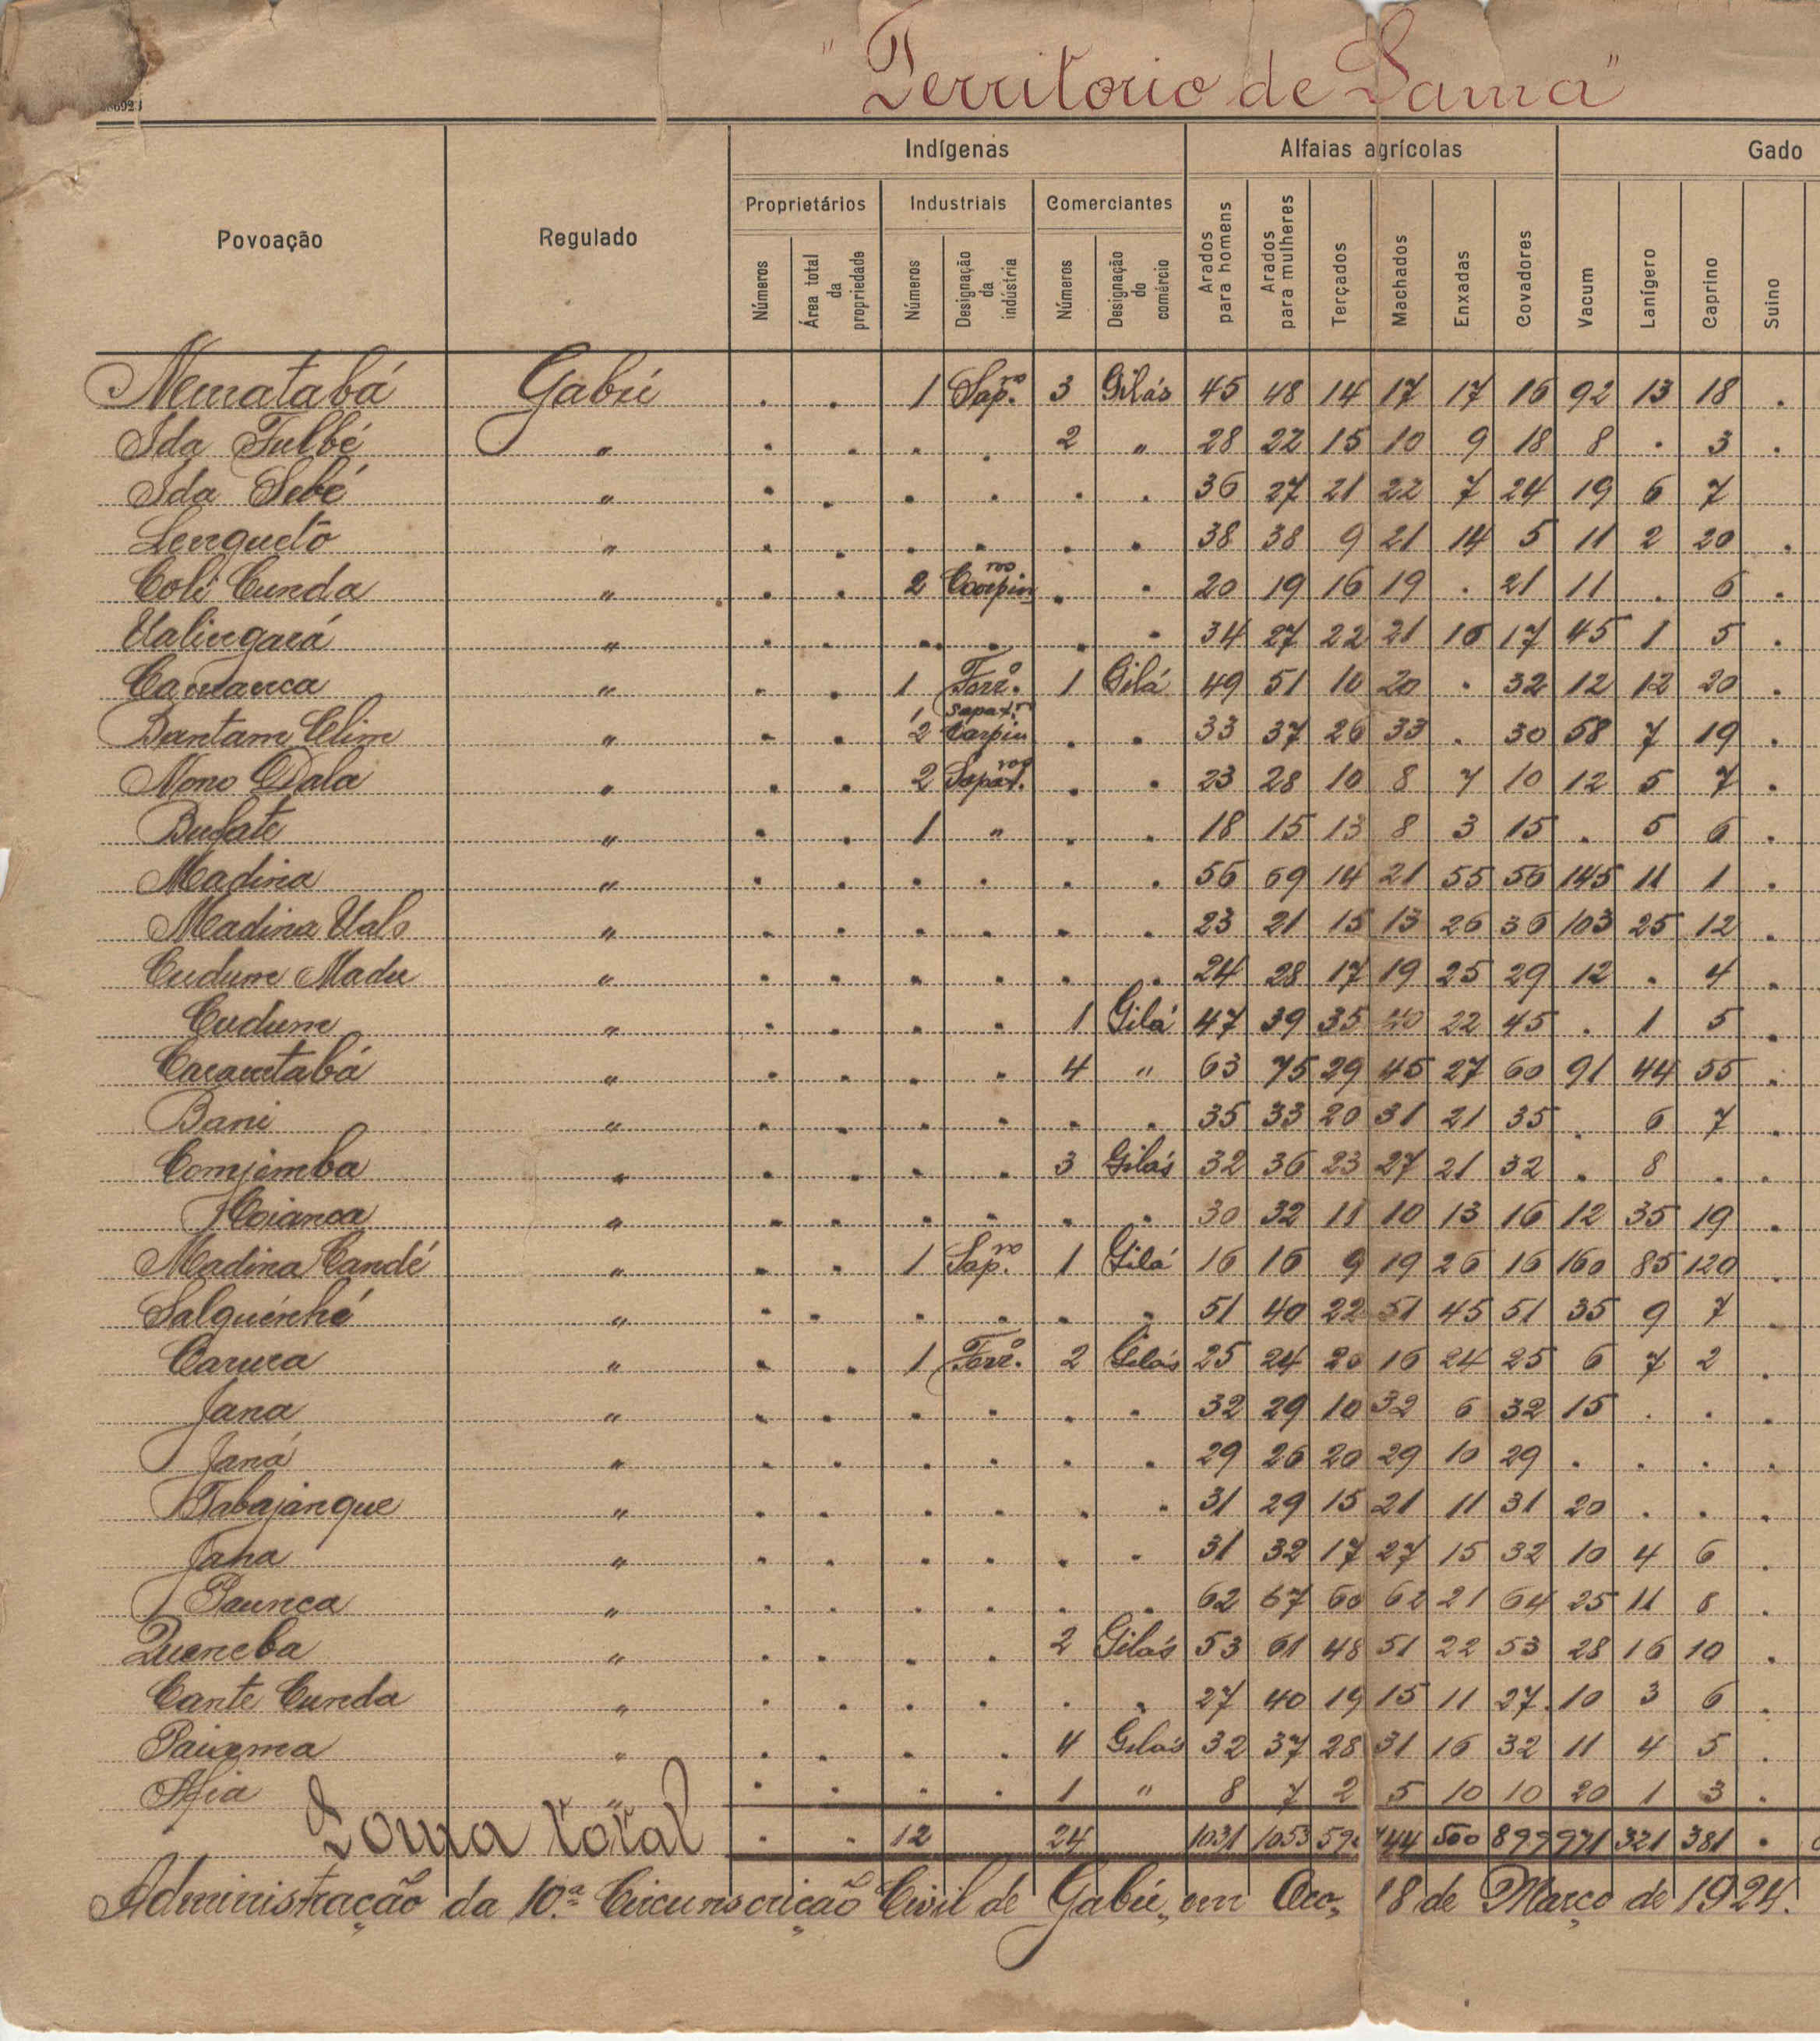 "Territorio de Sama"
Povoação Regulado Indígenas Alfaias agrícolas Gado
Proprietários Industriais Comerciantes
Números Área total da propriedade Números Designação da indústria Números Designação do comércio Arados para homens Arados para mulheres Terçados Machados Enxadas Covadores Vacum Lanígero Caprino Suino
Nematabá Gabú . . 1 Sap.ro 3 Gilás 45 48 14 17 17 16 92 13 18 .
Ida Fulbé " . . . . 2 " 28 22 15 10 9 18 8 . 3 .
Ida Sebé " . . . . . . 36 27 21 22 7 24 19 6 7
Lenguetó " . . . . . . 38 38 9 21 14 5 11 2 20 .
Coli Cunda " . . 2 Carpinros . . 20 19 16 19 . 21 11 . 6 .
Ualingará " . . . . . . 34 27 22 21 16 17 45 1 5 .
Camanca " . . 1 Ferr.o 1 Gilá 49 51 10 20 . 32 12 12 20 .
Bantam Clim " . . 1 Sapat.ro 2 Carpin . . 33 37 26 33 . 30 58 7 19 .
Nono Dala " . . 2 Sapat.ros . . 23 28 10 8 7 10 12 5 7 .
Bufate " . . 1 " . . 18 15 13 8 3 15 . 5 6 .
Madina " . . . . . . 56 69 14 21 55 56 145 11 1 .
Madina Ualo " . . . . . . 23 21 15 13 26 36 103 25 12 .
Cudum Madu " . . . . . . 24 28 17 19 25 29 12 . 4 .
Cudum " . . . . 1 Gilá 47 39 35 40 22 45 . 1 5 .
Caramtabá " . . . . 4 " 63 75 29 45 27 60 91 44 55 .
Bani " . . . . . . 35 33 20 31 21 35 . 6 7 .
Comjimba " . . . . 3 Gilás 32 36 23 27 21 32 . 8 . .
Coianca " . . . . . . 30 32 11 10 13 16 12 35 19 .
Madina Candé " . . 1 Sap.ro 1 Gilá 16 16 9 19 26 16 160 85 120 .
Salquenhé " . . . . . . 51 40 22 51 45 51 35 9 7 .
Caruca " . . 1 Ferr.o 2 Gilás 25 24 20 16 24 25 6 7 2 .
Jana " . . . . . . 32 29 10 32 6 32 15 . . .
Janá " . . . . . . 29 26 20 29 10 29 . . . .
Tabajanque " . . . . . . 31 29 15 21 11 31 20 . . .
Jana " . . . . . . 31 32 17 27 15 32 10 4 6 .
Paunca " . . . . . . 62 67 60 62 21 64 25 11 8 .
Quereba " . . . . 2 Gilás 53 61 48 51 22 53 28 16 10 .
Cante Cunda " . . . . . . 27 40 19 15 11 27 10 3 6 .
Paiama " . . . . 4 Gilás 32 37 28 31 16 32 11 4 5 .
Afia " . . . . 1 " 8 7 2 5 10 10 20 1 3 .
Soma total . . 12 24 1031 1053 744 500 899 971 321 381 .
Administração da 10.ª Circunscrição Civil de Gabú, em Oco, 18 de Março de 1924.